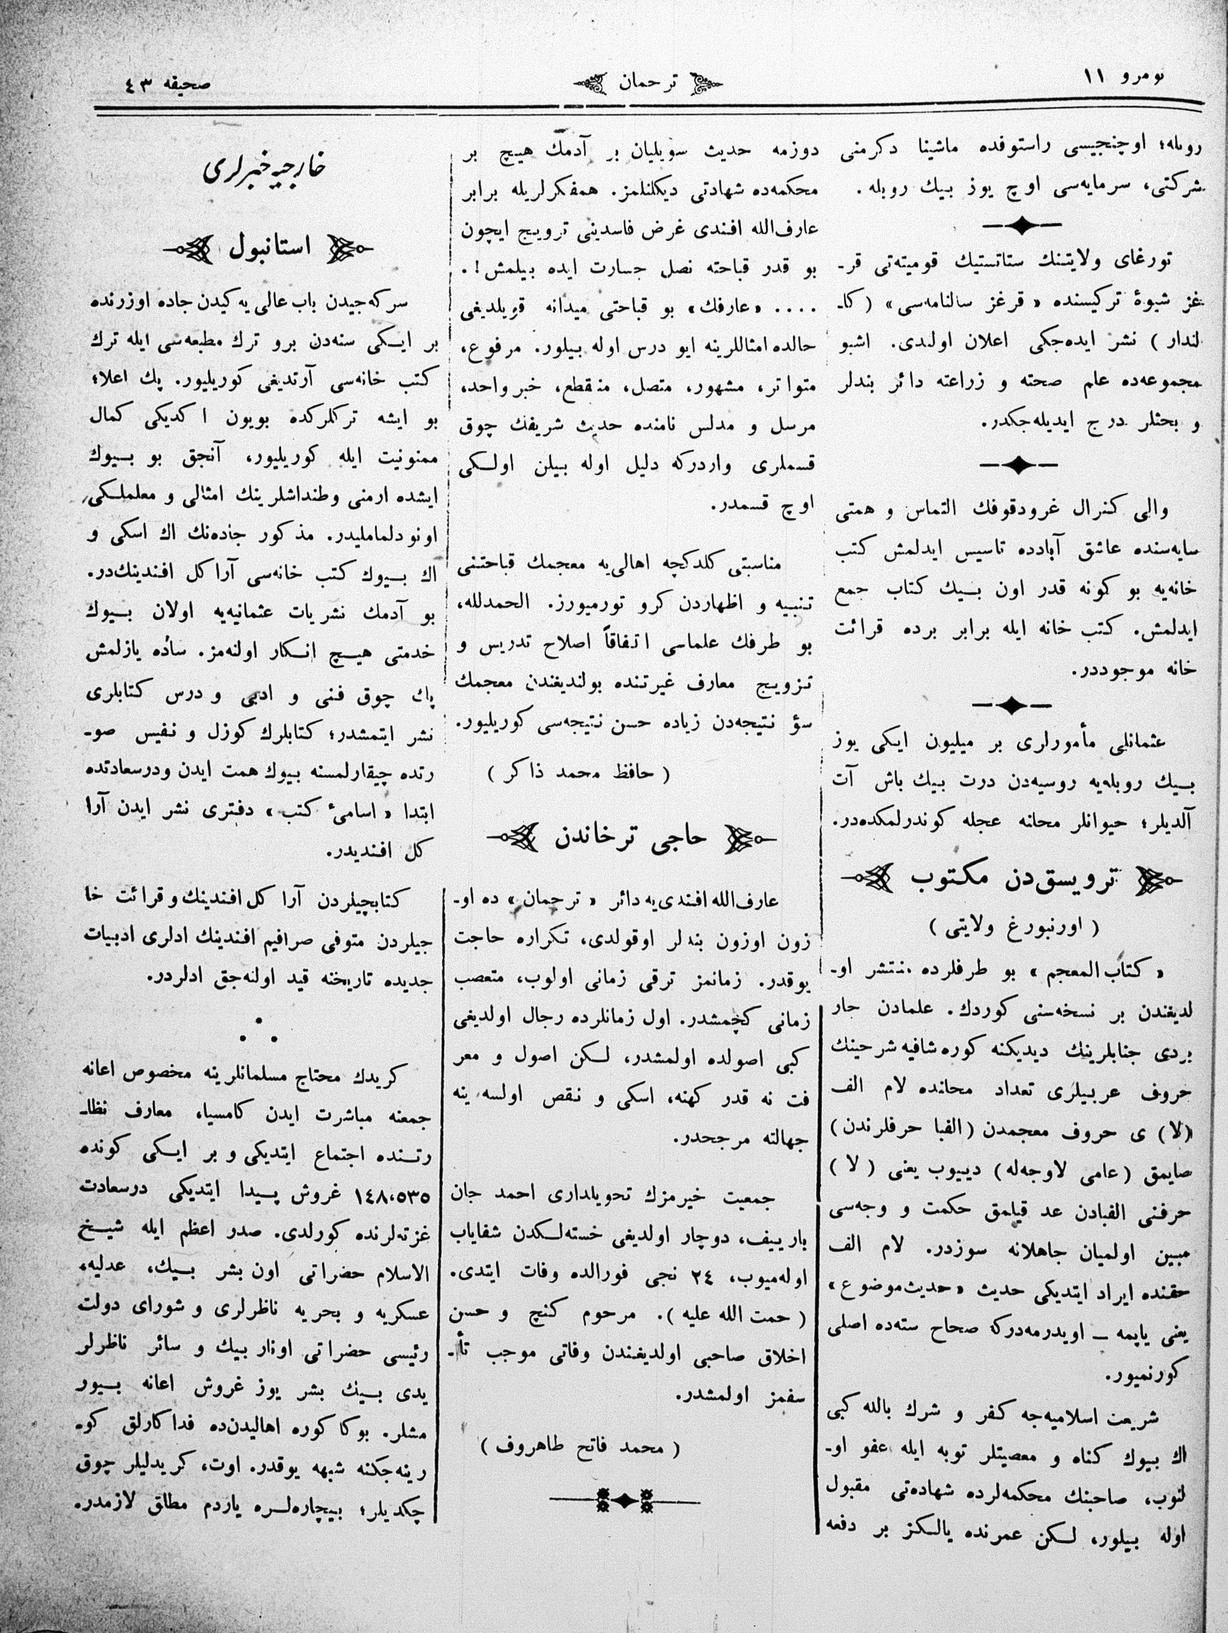 نومرو ١١
ترجمان
صحيفه ٤٣
روبله؛ اوچنجيسى راستوفده ماشينا دكرمنى
شركتى، سرمايه‌سى اوچ يوز بيك روبله.
تورغاى ولايتنك ستاتستيك قوميته‌تى قر-
غز شيوۀ تركيسنده «قرغز سالنامه‌سى» (كا-
لندار) نشر ايده‌جكى اعلان اولندى. اشبو
مجموعه‌ده علم صحته و زراعته دائر بندلر
و بحثلر درج ايديله‌جكدر.
والى كنرال غرودقوفك التماس و همتى
سايه‌سنده عاشق آبادده تاسيس ايدلمش كتب
خانه‌يه بو كونه قدر اون بيك كتاب جمع
ايدلمش. كتب خانه ايله برابر برده قرائت
خانه موجوددر.
عثمانلى مأمورلرى بر ميليون ايكى يوز
بيك روبله‌يه روسيه‌دن درت بيك باش آت
آلديلر؛ حيوانلر محانه عجله كوندرلمكده‌در.
ترويسق‌دن مكتوب
(اورنبورغ ولايتى)
«كتاب المعجم» بو طرفلرده منتشر او-
لديغندن بر نسخه‌سنى كوردك. علمادن جار
بردى جنابلرينك ديديكنه كوره شافيه شرحينك
حروف عربيلرى تعداد محانده لام الف
(لا) ى حروف معجمدن (الفبا حرفلرندن)
صايمق (عامى لاوجه‌له) دييوب يعنى (لا)
حرفنى الفبادن عد قيلمق حكمت و وجه‌سى
مبين اولميان جاهلانه سوزدر. لام الف
حقنده ايراد ايتديكى حديث «حديث موضوع»
يعنى ياپمه — اويدرمه‌دركه صحاح سته‌ده اصلى
كورنميور.
شريعت اسلاميه‌جه كفر و شرك بالله كبى
اك بيوك كناه و معصيتلر توبه ايله عفو او-
لنوب، صاحبنك محكمه‌لرده شهاده‌تى مقبول
اوله بيلور، لكن عمرنده يالكز بر دفعه
دوزمه حديث سويليان بر آدمك هيچ بر
محكمه‌ده شهادتى ديكلنلمز. همفكرلريله برابر
عارف‌الله افندى غرض فاسدينى ترويج ايچون
بو قدر قباحته نصل جسارت ايده بيلمش!.
.... «عارفك» بو قباحتى ميدانه قويلديغى
حالده امثاللرينه ايو درس اوله بيلور. مرفوع،
متواتر، مشهور، متصل، منقطع، خبر واحد،
مرسل و مدلس نامنده حديث شريفك چوق
قسملرى واردركه دليل اوله بيلن اولكى
اوچ قسمدر.
مناسبتى كلدكچه اهالى‌يه معجمك قباحتنى
تنبيه و اظهاردن كرو تورميورز. الحمدلله،
بو طرفك علماسى اتفاقاً اصلاح تدريس و
تزويج معارف غيرتنده بولنديغندن معجمك
سؤ نتيجه‌دن زياده حسن نتيجه‌سى كوريليور.
(حافظ محمد ذاكر)
حاجى ترخاندن
عارف‌الله افندى‌يه دائر «ترجمان» ده او-
زون اوزون بندلر اوقولدى، تكراره حاجت
يوقدر. زمانمز ترقى زمانى اولوب، متعصب
زمانى كچمشدر. اول زمانلرده رجال اولديغى
كبى اصولده اولمشدر، لكن اصول و معر
فت نه قدر كهنه، اسكى و نقص اولسه، ينه
جهالته مرجحدر.
جمعيت خيرمزك تحويلدارى احمد جان
بارييف، دوچار اولديغى خسته‌لكدن شفاياب
اوله‌ميوب، ٢٤ نجى فورالده وفات ايتدى.
(رحمت الله عليه). مرحوم كنچ و حسن
اخلاق صاحبى اولديغندن وفاتى موجب تأ-
سفمز اولمشدر.
(محمد فاتح طاهروف)
خارجيه خبرلرى
استانبول
سركه‌جيدن باب عالى يه كيدن جاده اوزرنده
بر ايكى سنه‌دن برو ترك مطبعه‌سى ايله ترك
كتب خانه‌سى آرتديغى كوريليور. پك اعلا؛
بو ايشه تركلركده بويون اكديكى كمال
ممنونيت ايله كوريليور، آنجق بو بيوك
ايشده ارمنى وطنداشلرينك امثالى و معلملكى
اونودلمامليدر. مذكور جاده‌نك اك اسكى و
اك بيوك كتب خانه‌سى آراكل افندينك‌در.
بو آدمك نشريات عثمانيه‌يه اولان بيوك
خدمتى هيچ انكار اولنه‌مز. ساده يازلمش
پك چوق فنى و ادبى و درس كتابلرى
نشر ايتمشدر؛ كتابلرك كوزل و نفيس صو-
رتده چيقارلمسنه بيوك همت ايدن ودرسعادتده
ابتدا «اسامئ كتب» دفترى نشر ايدن آرا
كل افنديدر.
كتابچيلردن آراكل افندينك و قرائت خا
جيلردن متوفى صرافيم افندينك ادلرى ادبيات
جديده تاريخنه قيد اولنه‌جق ادلردر.
كريدك محتاج مسلمانلرينه مخصوص اعانه
جمعنه مباشرت ايدن كامسيا، معارف نظا-
رتنده اجتماع ايتديكى و بر ايكى كونده
١٤٨،٥٣٥ غروش پيدا ايتديكى درسعادت
غزته‌لرنده كورلدى. صدر اعظم ايله شيخ
الاسلام حضراتى اون بشر بيك، عدليه،
عسكريه و بحريه ناظرلرى و شوراى دولت
رئيسى حضراتى اونار بيك و سائر ناظرلر
يدى بيك بشر يوز غروش اعانه بيور
مشلر. بوكا كوره اهاليدن‌ده فداكارلق كو-
رينه‌جكنه شبهه يوقدر. اوت، كريدليلر چوق
چكديلر؛ بيچاره‌لره ياردم مطلق لازمدر.